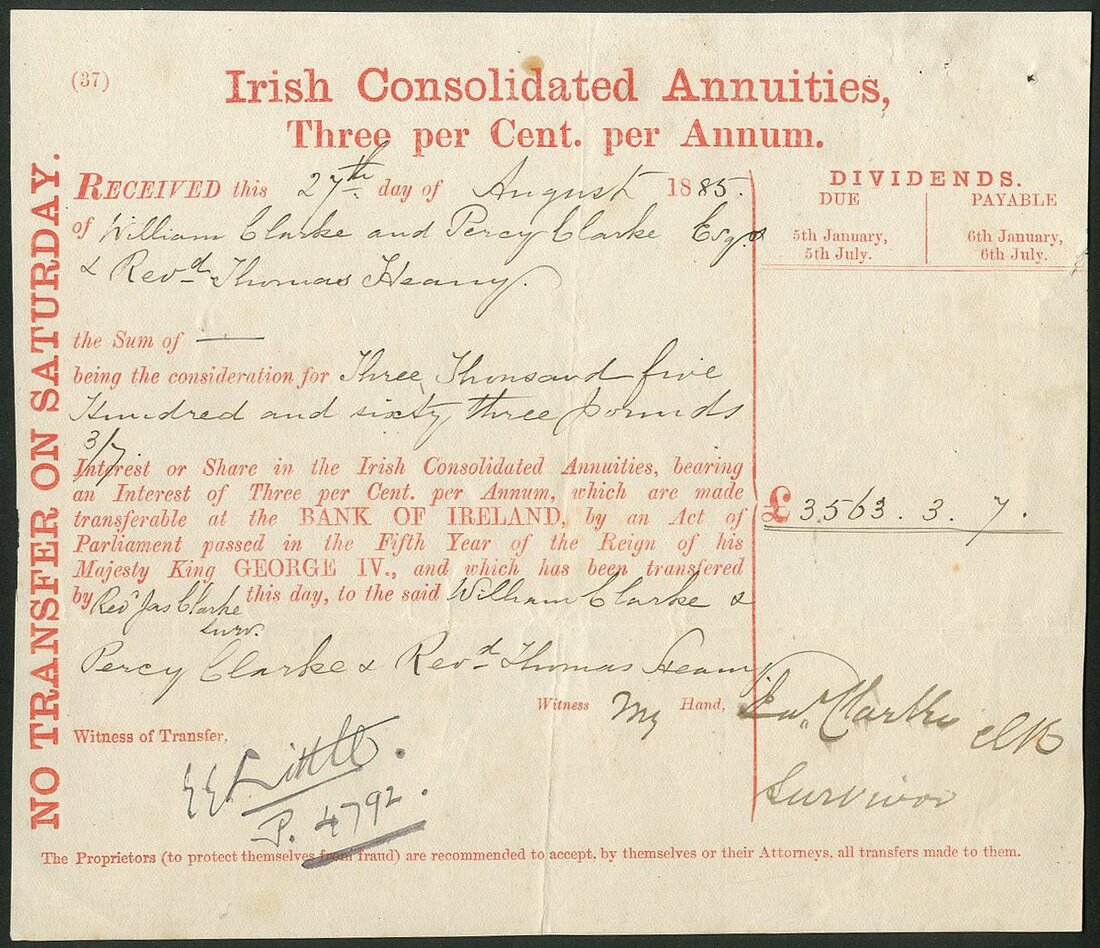 (37)
Irish Consolidated Annuities,
Three per Cent. per Annum.
NO TRANSFER ON SATURDAY.
RECEIVED this 27th day of August 1885.
of William Clarke and Percy Clarke Esqrs
& Revd Thomas Heany.
the Sum of —
being the consideration for Three Thousand five
Hundred and sixty three pounds
3/7
Interest or Share in the Irish Consolidated Annuities, bearing
an Interest of Three per Cent. per Annum, which are made
transferable at the BANK OF IRELAND, by an Act of
Parliament passed in the Fifth Year of the Reign of his
Majesty King GEORGE IV., and which has been transferred
by Revd Jas Clarke this day, to the said William Clarke &
Surv.
Percy Clarke & Revd Thomas Heany
DIVIDENDS.
DUE PAYABLE
5th January, 6th January,
5th July. 6th July.
£3563. 3. 7.
Witness My Hand, Clarke
Survivor
Witness of Transfer,
Little.
P. 4792.
The Proprietors (to protect themselves from fraud) are recommended to accept, by themselves or their Attorneys, all transfers made to them.